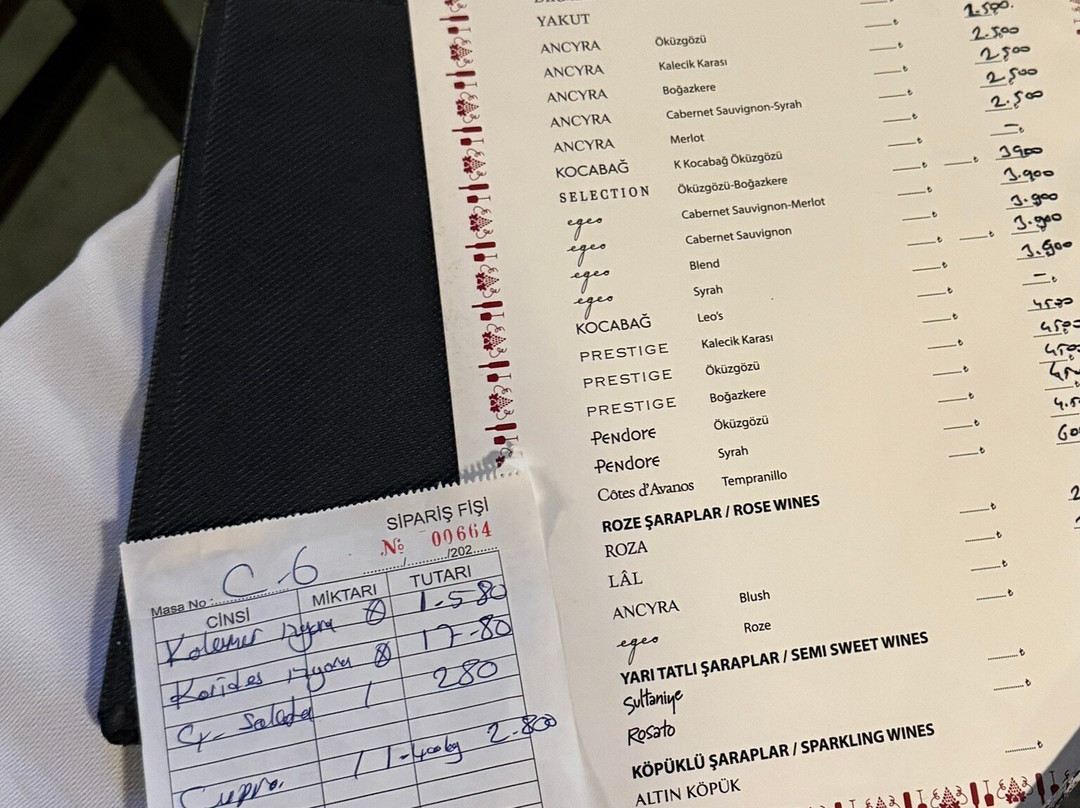 YAKUT 2.500.
ANCYRA Öküzgözü 2.500
ANCYRA Kalecik Karası 2.500
ANCYRA Boğazkere 2.500
ANCYRA Cabernet Sauvignon-Syrah 2.500
ANCYRA Merlot
KOCABAĞ K Kocabağ Öküzgözü 3900
SELECTION Öküzgözü-Boğazkere 3.900
egeo Cabernet Sauvignon-Merlot 3.900
egeo Cabernet Sauvignon 3.900
egeo Blend 3.900
egeo Syrah
KOCABAĞ Leo's
PRESTIGE Kalecik Karası
PRESTIGE Öküzgözü
PRESTIGE Boğazkere
Pendore Öküzgözü
Pendore Syrah
Côtes d'Avanos Tempranillo
ROZE ŞARAPLAR / ROSE WINES
ROZA
LÂL
ANCYRA Blush
egeo Roze
YARI TATLI ŞARAPLAR / SEMI SWEET WINES
Sultaniye
Rosato
KÖPÜKLÜ ŞARAPLAR / SPARKLING WINES
ALTIN KÖPÜK
SİPARİŞ FİŞİ
№ 00664
Masa No : C-6 ......../......../202.......
CİNSİ MİKTARI TUTARI
Kalemar Izgara 1-580
Karides Izgara 17-80
Salata 1 280
Cupra. 1 1-400kg 2.800